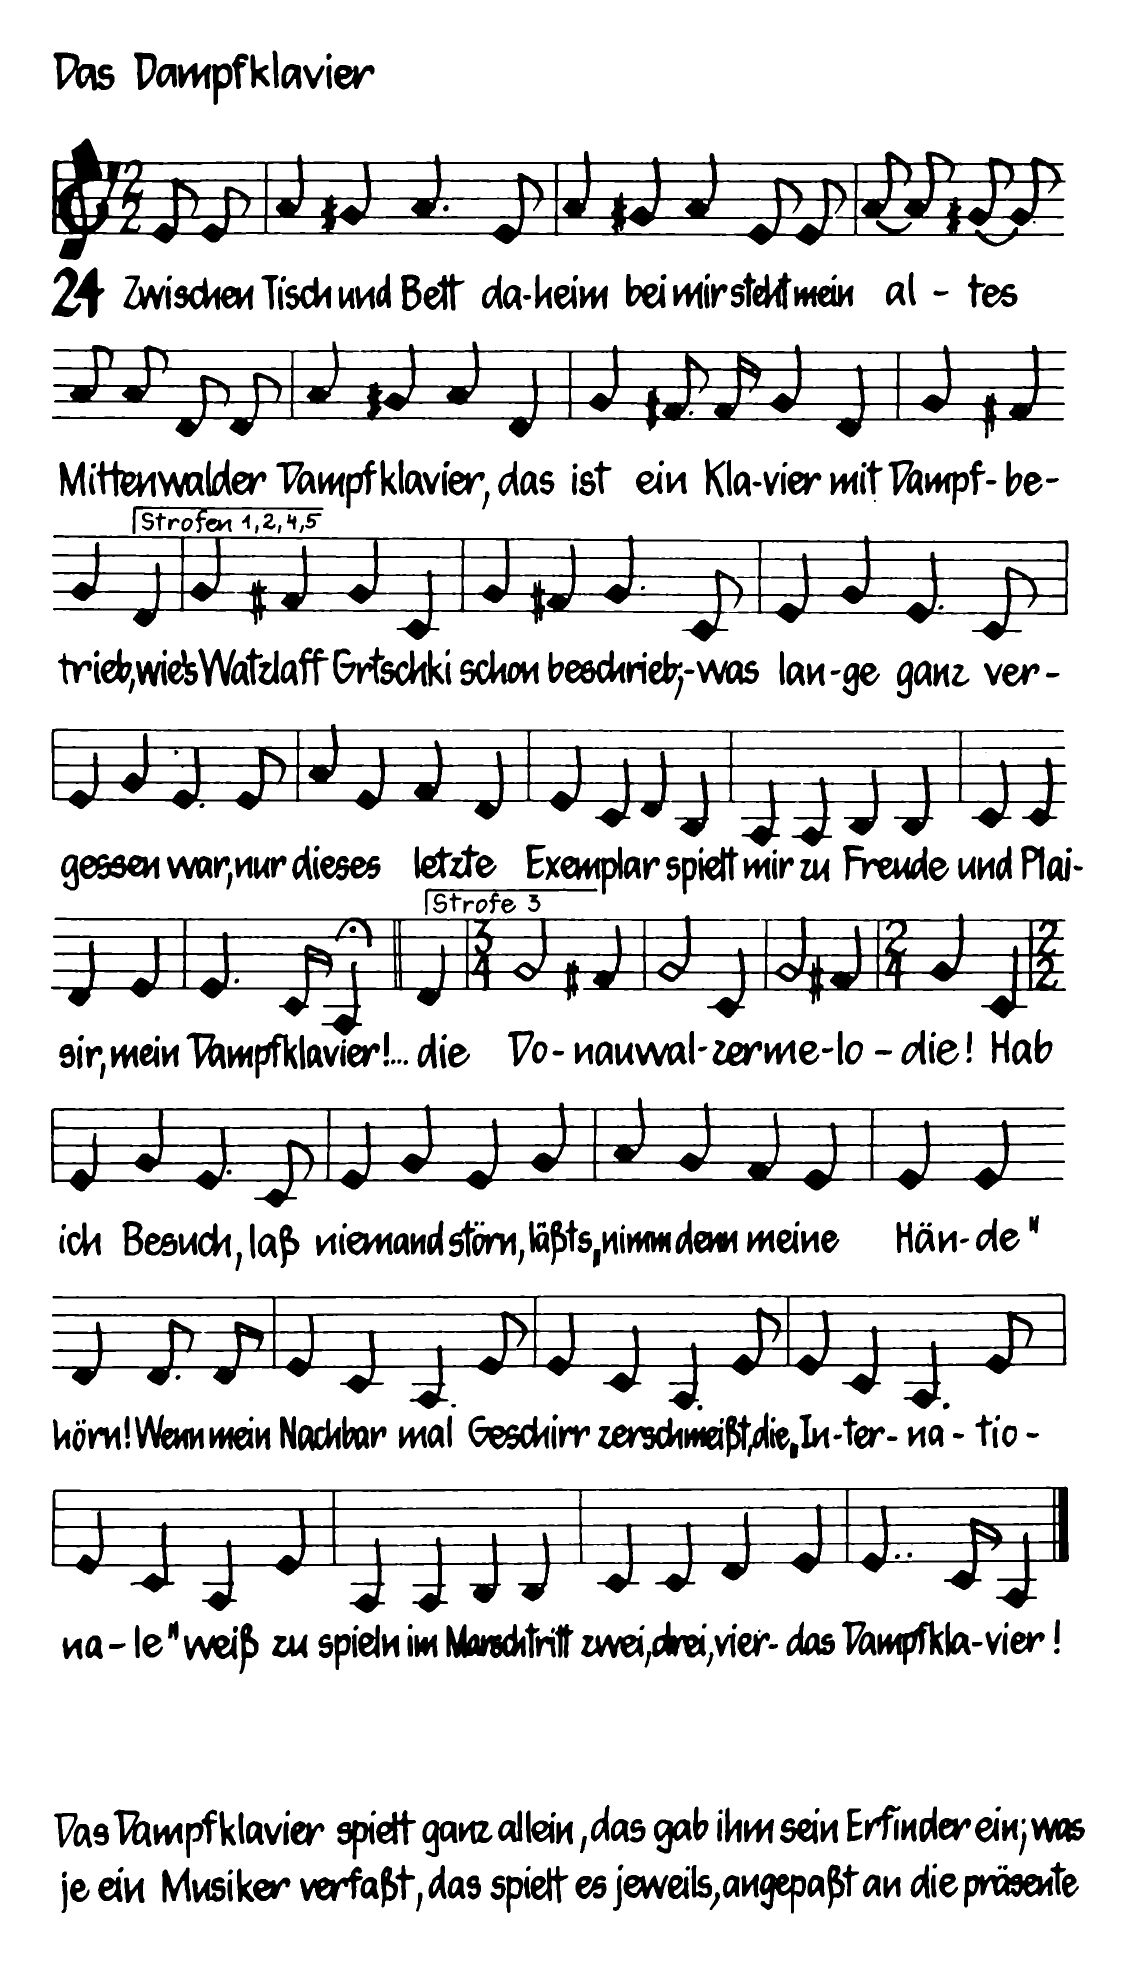 Das Dampfklavier
2
2
24 Zwischen Tisch und Bett da-heim bei mir steht mein al - tes
Mittenwalder Dampfklavier, das ist ein Kla-vier mit Dampf-be-
Strofen 1,2,4,5
trieb, wie's Watzlaff Grtschki schon beschrieb;- was lan-ge ganz ver-
gessen war, nur dieses letzte Exemplar spielt mir zu Freude und Plai-
Strofe 3
3 2 2
4 4 2
sir, mein Dampfklavier!... die Do-nauwal-zerme-lo - die! Hab
ich Besuch, laß niemand störn, läßts „nimm denn meine Hän-de"
hörn! Wenn mein Nachbar mal Geschirr zerschmeißt, die „In-ter-na-tio-
na-le" weiß zu spieln im Marschtritt zwei, drei, vier- das Dampfkla-vier!
Das Dampfklavier spielt ganz allein, das gab ihm sein Erfinder ein; was
je ein Musiker verfaßt, das spielt es jeweils, angepaßt an die präsente